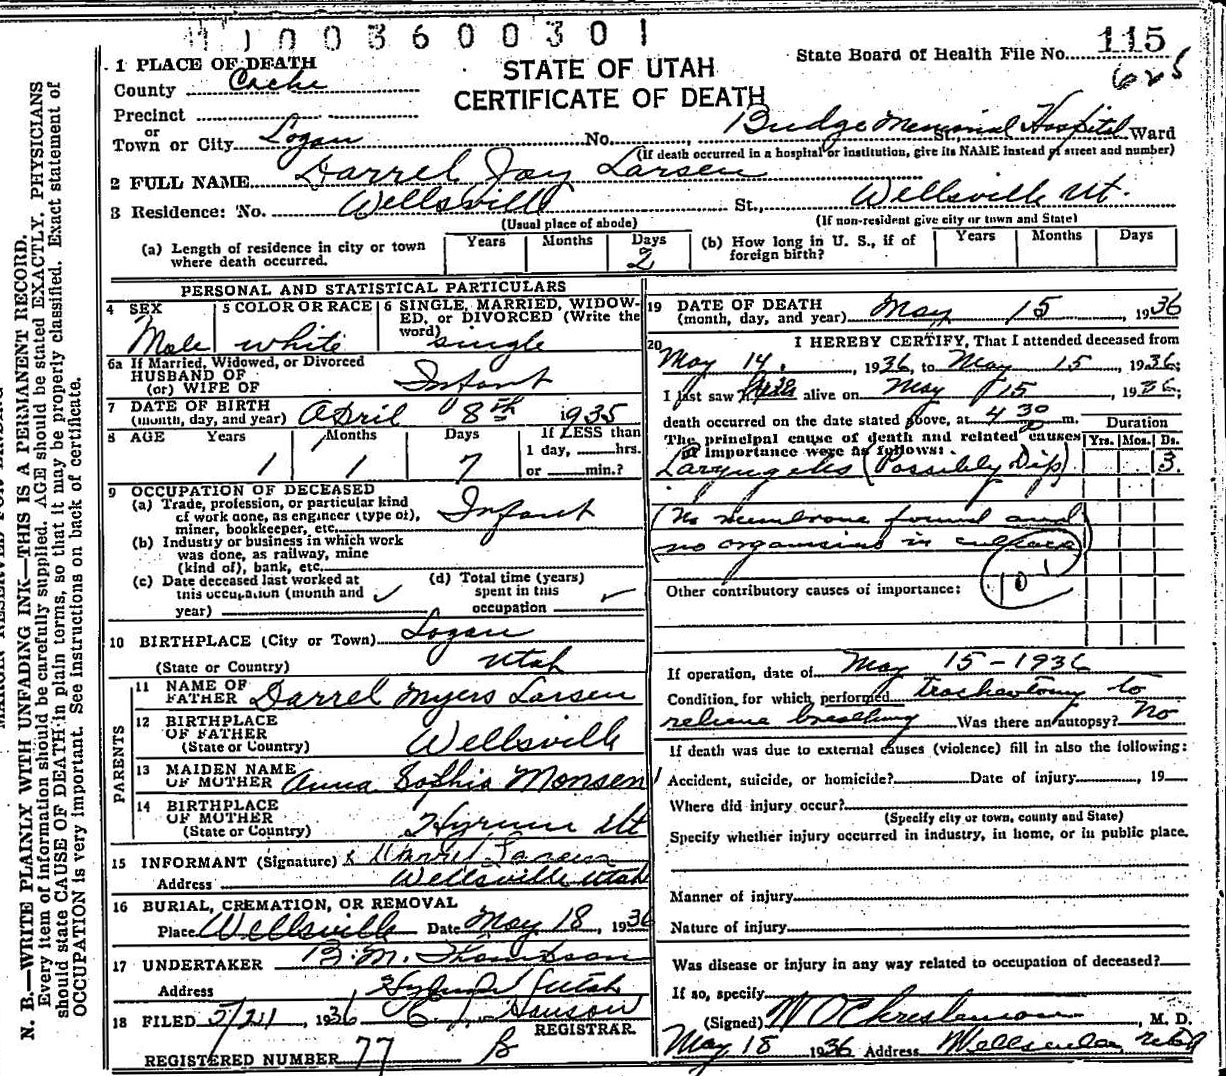 1 PLACE OF DEATH
STATE OF UTAH
CERTIFICATE OF DEATH
State Board of Health File No. 115
625
County Cache
Precinct
or
Town or City Logan No. Budge Memorial Hospital St. Ward
(If death occurred in a hospital or institution, give its NAME instead of street and number)
2 FULL NAME Darrel Jay Larsen
3 Residence: No. Wellsville St., Wellsville Ut.
(Usual place of abode) (If non-resident give city or town and State)
(a) Length of residence in city or town where death occurred. Years Months Days 2
(b) How long in U. S., if of foreign birth? Years Months Days
PERSONAL AND STATISTICAL PARTICULARS
4 SEX Male
5 COLOR OR RACE white
6 SINGLE, MARRIED, WIDOWED, or DIVORCED (Write the word) single
6a If Married, Widowed, or Divorced
HUSBAND OF
(or) WIFE OF Infant
7 DATE OF BIRTH
(month, day, and year) April 8th 1935
8 AGE Years 1 Months 1 Days 7
If LESS than
1 day, hrs.
or min.?
9 OCCUPATION OF DECEASED
(a) Trade, profession, or particular kind of work done, as engineer (type of), miner, bookkeeper, etc. Infant
(b) Industry or business in which work was done, as railway, mine (kind of), bank, etc.
(c) Date deceased last worked at this occupation (month and year) ✓
(d) Total time (years) spent in this occupation ✓
10 BIRTHPLACE (City or Town) Logan
(State or Country) Utah
PARENTS
11 NAME OF FATHER Darrel Myers Larsen
12 BIRTHPLACE OF FATHER
(State or Country) Wellsville
13 MAIDEN NAME OF MOTHER Anna Sophia Monsen
14 BIRTHPLACE OF MOTHER
(State or Country) Hyrum Ut
15 INFORMANT (Signature) x Darrel Larsen
Address Wellsville Utah
16 BURIAL, CREMATION, OR REMOVAL
Place Wellsville Date May 18, 1936
17 UNDERTAKER B. M. Thompson
Address Utah
18 FILED 1936 Hanson
REGISTRAR
REGISTERED NUMBER 77
19 DATE OF DEATH
(month, day, and year) May 15, 1936
20 I HEREBY CERTIFY, That I attended deceased from
May 14, 1936, to May 15 1936;
I last saw alive on May 15, 1936;
death occurred on the date stated above, at 4 30 m.
The principal cause of death and related causes of importance were as follows:
Duration
Yrs. Mos. Ds.
Laryngitis (Possibly Dip) 3.
(No membrane found and
no organisms in culture)
101
Other contributory causes of importance:
If operation, date of May 15-1936
Condition for which performed tracheotomy to
relieve breathing Was there an autopsy? No
If death was due to external causes (violence) fill in also the following:
Accident, suicide, or homicide? Date of injury , 19
Where did injury occur?
(Specify city or town, county and State)
Specify whether injury occurred in industry, in home, or in public place.
Manner of injury
Nature of injury
Was disease or injury in any way related to occupation of deceased?
If so, specify
(Signed) W O Christensen, M. D.
May 18 1936 Address Wellsville, Utah
N. B.—WRITE PLAINLY WITH UNFADING INK—THIS IS A PERMANENT RECORD.
Every item of information should be carefully supplied. AGE should be stated EXACTLY. PHYSICIANS
should state CAUSE OF DEATH in plain terms, so that it may be properly classified. Exact statement of
OCCUPATION is very important. See instructions on back of certificate.